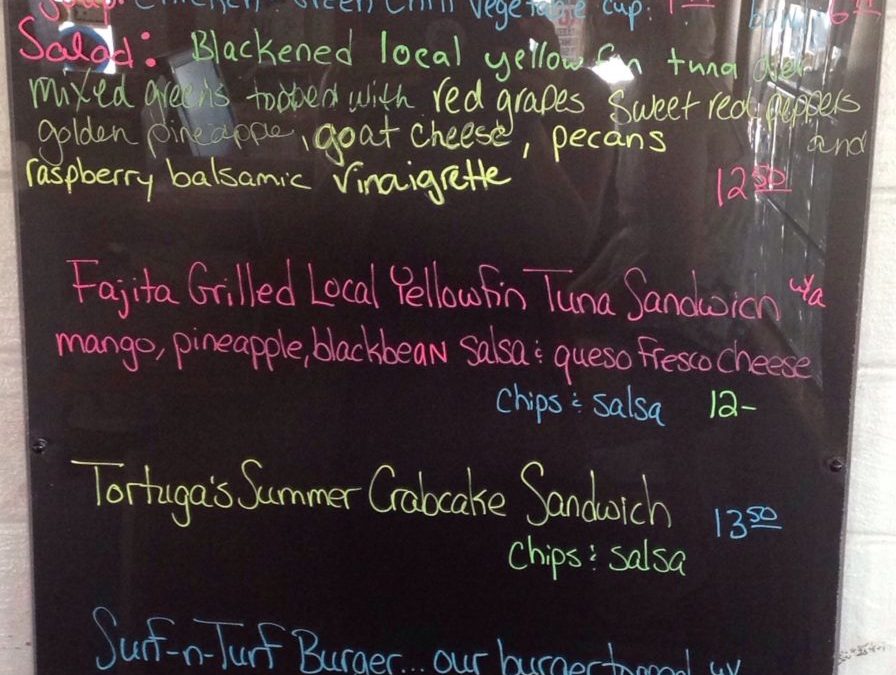 Soup: Chicken Green Chili Vegetable cup. bowl 6
Salad: Blackened local yellowfin tuna over
mixed greens topped with red grapes sweet red peppers
golden pineapple, goat cheese, pecans and
raspberry balsamic vinaigrette 12 50
Fajita Grilled Local Yellowfin Tuna Sandwich w/a
mango, pineapple, blackbean salsa & queso fresco cheese
chips & salsa 12-
Tortuga's Summer Crabcake Sandwich 13 50
chips & salsa
Surf-n-Turf Burger... our burger topped w/